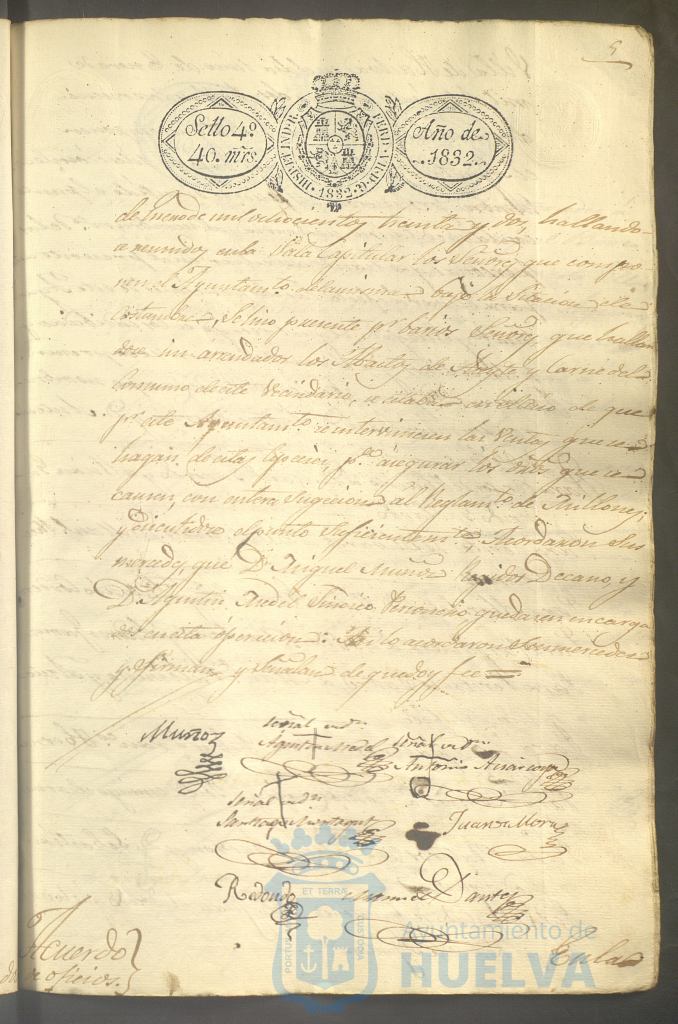 5
Sello 4º
40. mrs.
HISP. ET IND. R.
FERD. VII D. G.
1832
Año de
1832.
de Enero de mil ochocientos treinta y dos, hallando-
se reunidos en la Sala Capitular los Señores que compo-
nen el Ayuntamto. de la misma bajo la citacion de
costumbre, se hizo presente pr. barios Señores que hallan
dose sin arrendador los Abastos de Aceyte y Carne del
consumo de este Vecindario, se estaba en el caso de que
pr. este Ayuntamto. se intervinieran las Ventas que se
hagan de estas Especies, pa. asegurar los dros. que se
causen, con entera sugecion al Reglamto. de Millones;
y discutidose el punto suficientemte. Acordaron sus
mercedes, que Dn. Miguel Muñoz Regidor Decano, y
Dn. Agustin Medel Sindico Personero quedasen encarga
dos en esta operacion: Asi lo acordaron sus mercedes
y firman, y señalan de que doy fee =
Muñoz
señal + de Dn.
Agustin Medel
señal + de Dn.
Antonio
señal + de Dn.
Santiago
Juan de Mora
Redondo
Manuel Dante
Acuerdo
sobre oficios.
En la
PORTUS
ET TERRAE
CUSTODIA
Ayuntamiento de
HUELVA